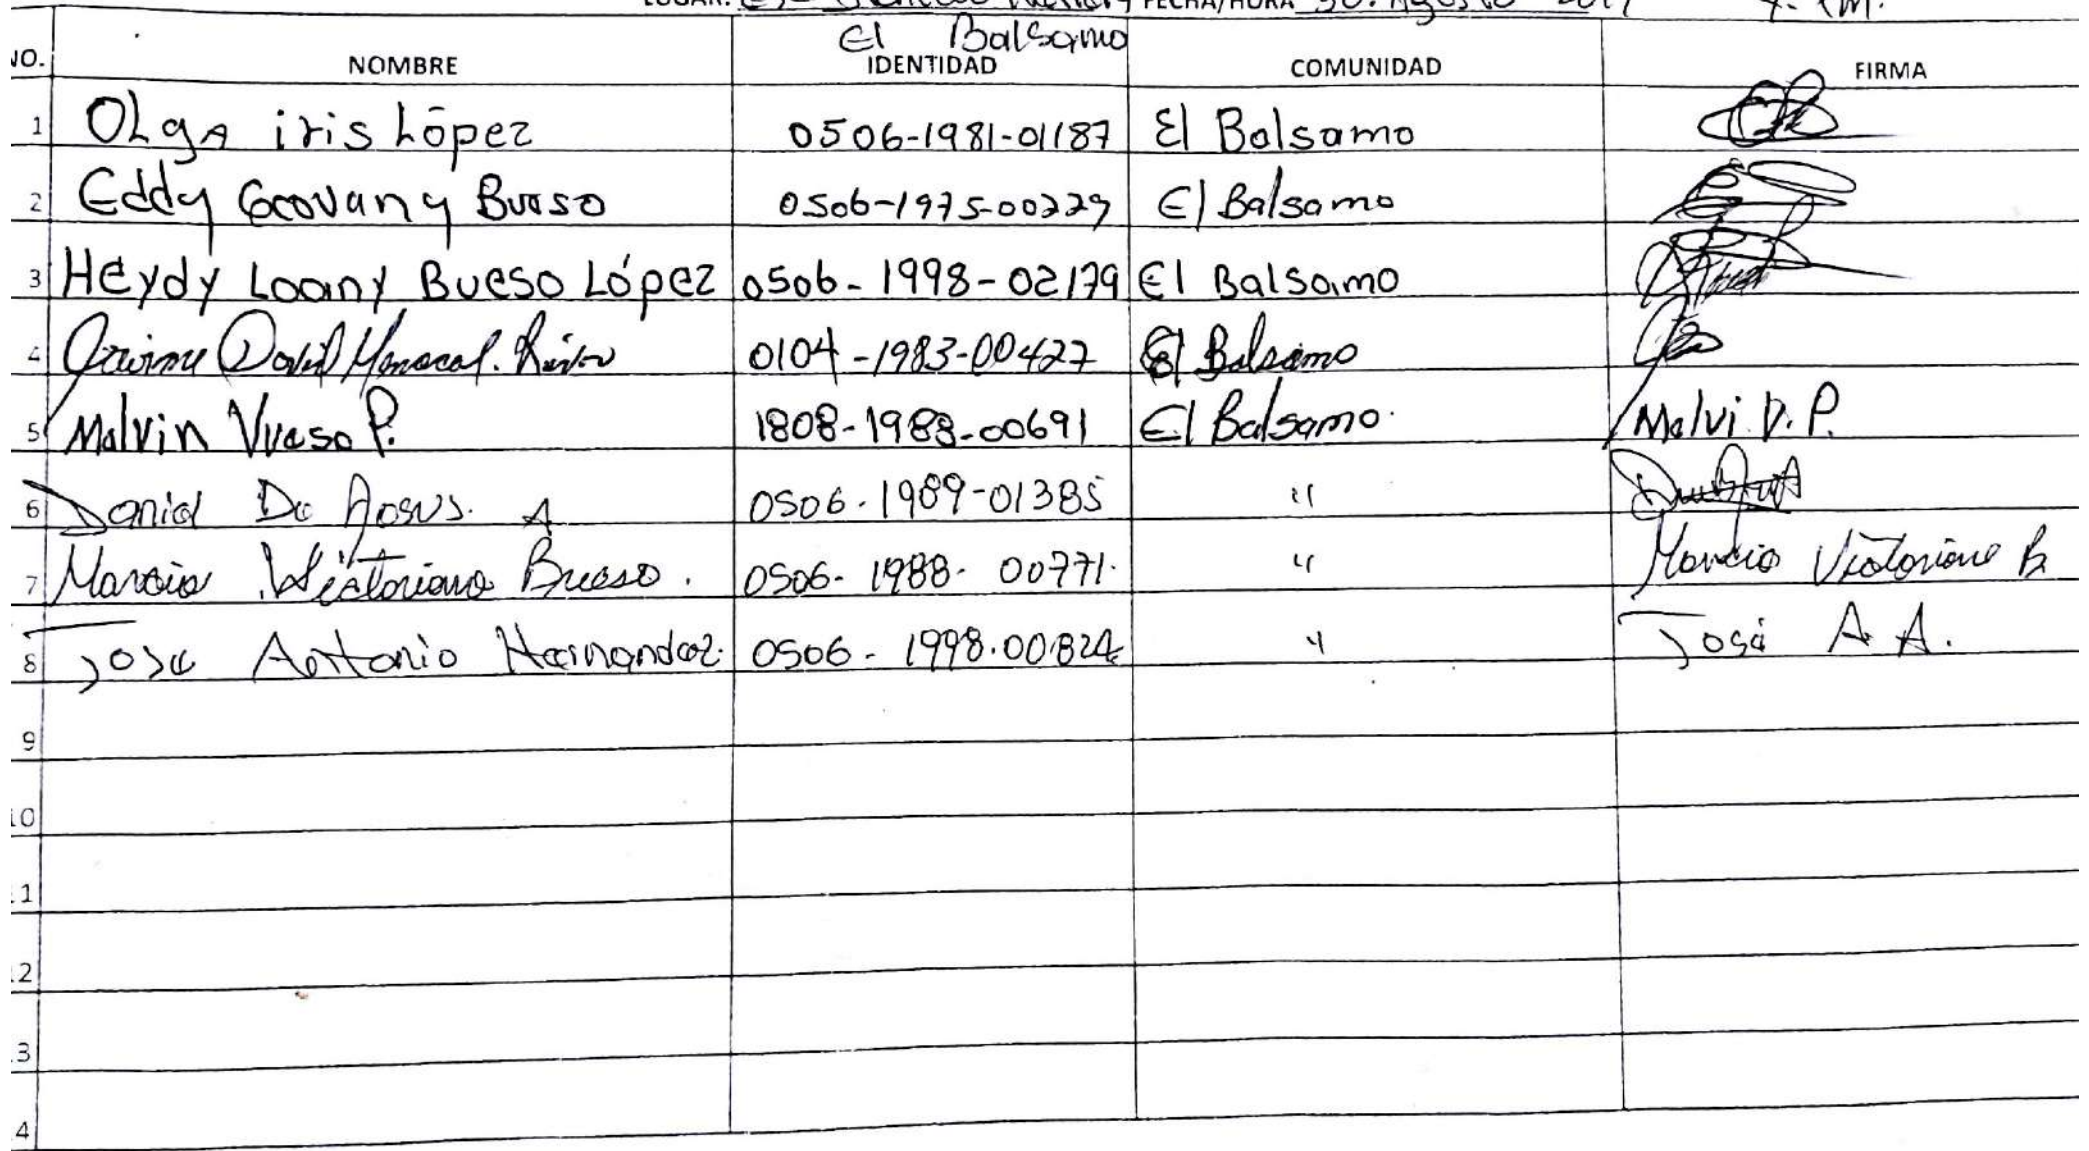 FECHA/HORA 30. Agosto
El Balsamo
NO. NOMBRE IDENTIDAD COMUNIDAD FIRMA
1 OLgA iris López 0506-1981-01187 El Balsamo
2 Eddy Geovany Bueso 0506-1975-00229 El Balsamo
3 Heydy Loany Bueso López 0506-1998-02179 El Balsamo
4 David 0104-1983-00427 El Balsamo
5 Malvin Vueso P. 1808-1988-00691 El Balsamo Malvi V. P.
6 Daniel De A 0506-1989-01385 "
7 Marcio Victoriano Bueso. 0506-1988-00771. " Marcio Victoriano B
8 Jose Antonio Hernandez. 0506-1998-00824 " José A A.
9
10
11
12
13
14